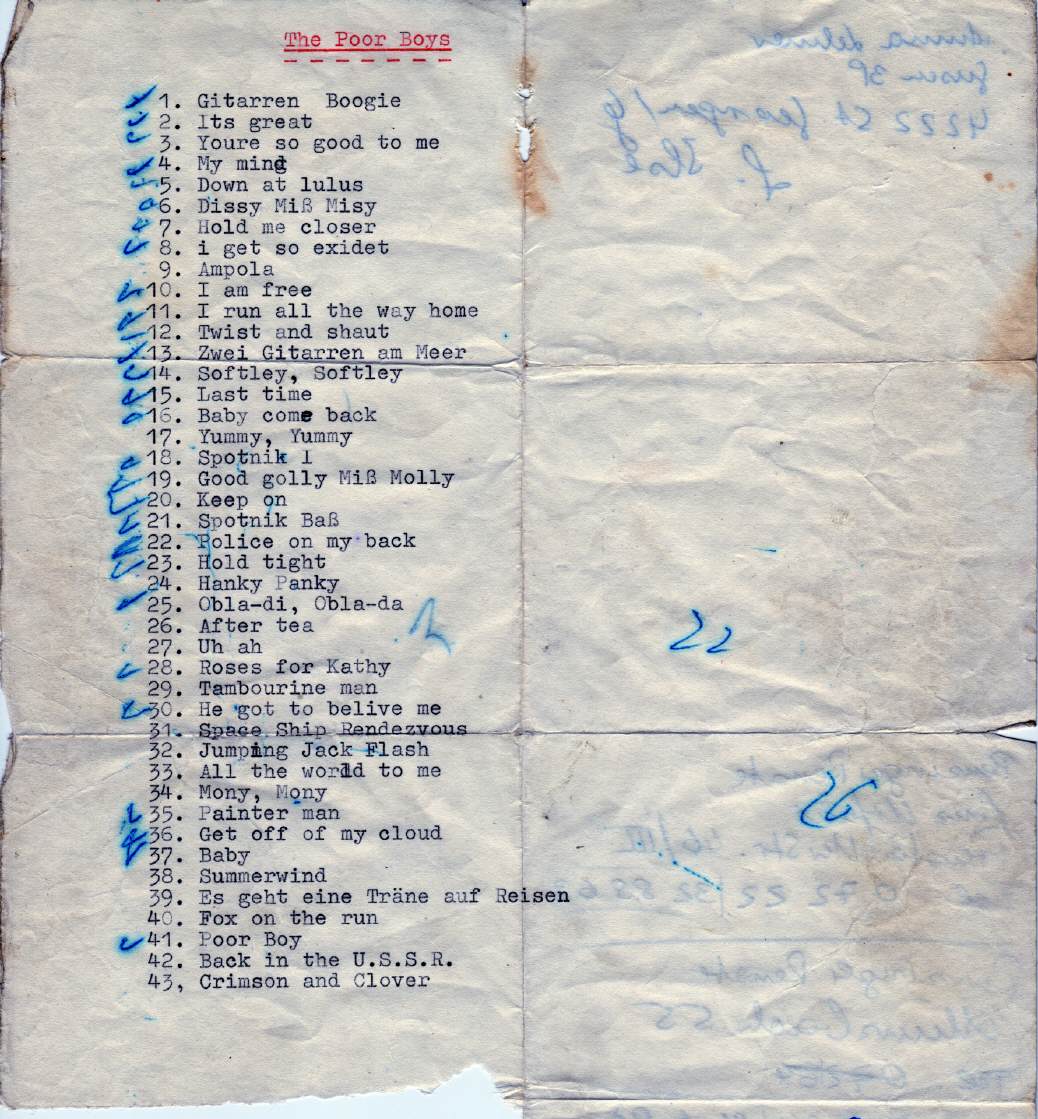 The Poor Boys
1. Gitarren Boogie
2. Its great
3. Youre so good to me
4. My mind
5. Down at lulus
6. Dissy Miß Misy
7. Hold me closer
8. i get so exidet
9. Ampola
10. I am free
11. I run all the way home
12. Twist and shaut
13. Zwei Gitarren am Meer
14. Softley, Softley
15. Last time
16. Baby come back
17. Yummy, Yummy
18. Spotnik 1
19. Good golly Miß Molly
20. Keep on
21. Spotnik Baß
22. Police on my back
23. Hold tight
24. Hanky Panky
25. Obla-di, Obla-da
26. After tea
27. Uh ah
28. Roses for Kathy
29. Tambourine man
30. He got to belive me
31. Space Ship Rendezvous
32. Jumping Jack Flash
33. All the world to me
34. Mony, Mony
35. Painter man
36. Get off of my cloud
37. Baby
38. Summerwind
39. Es geht eine Träne auf Reisen
40. Fox on the run
41. Poor Boy
42. Back in the U.S.S.R.
43, Crimson and Clover
4222 St
22
26
55